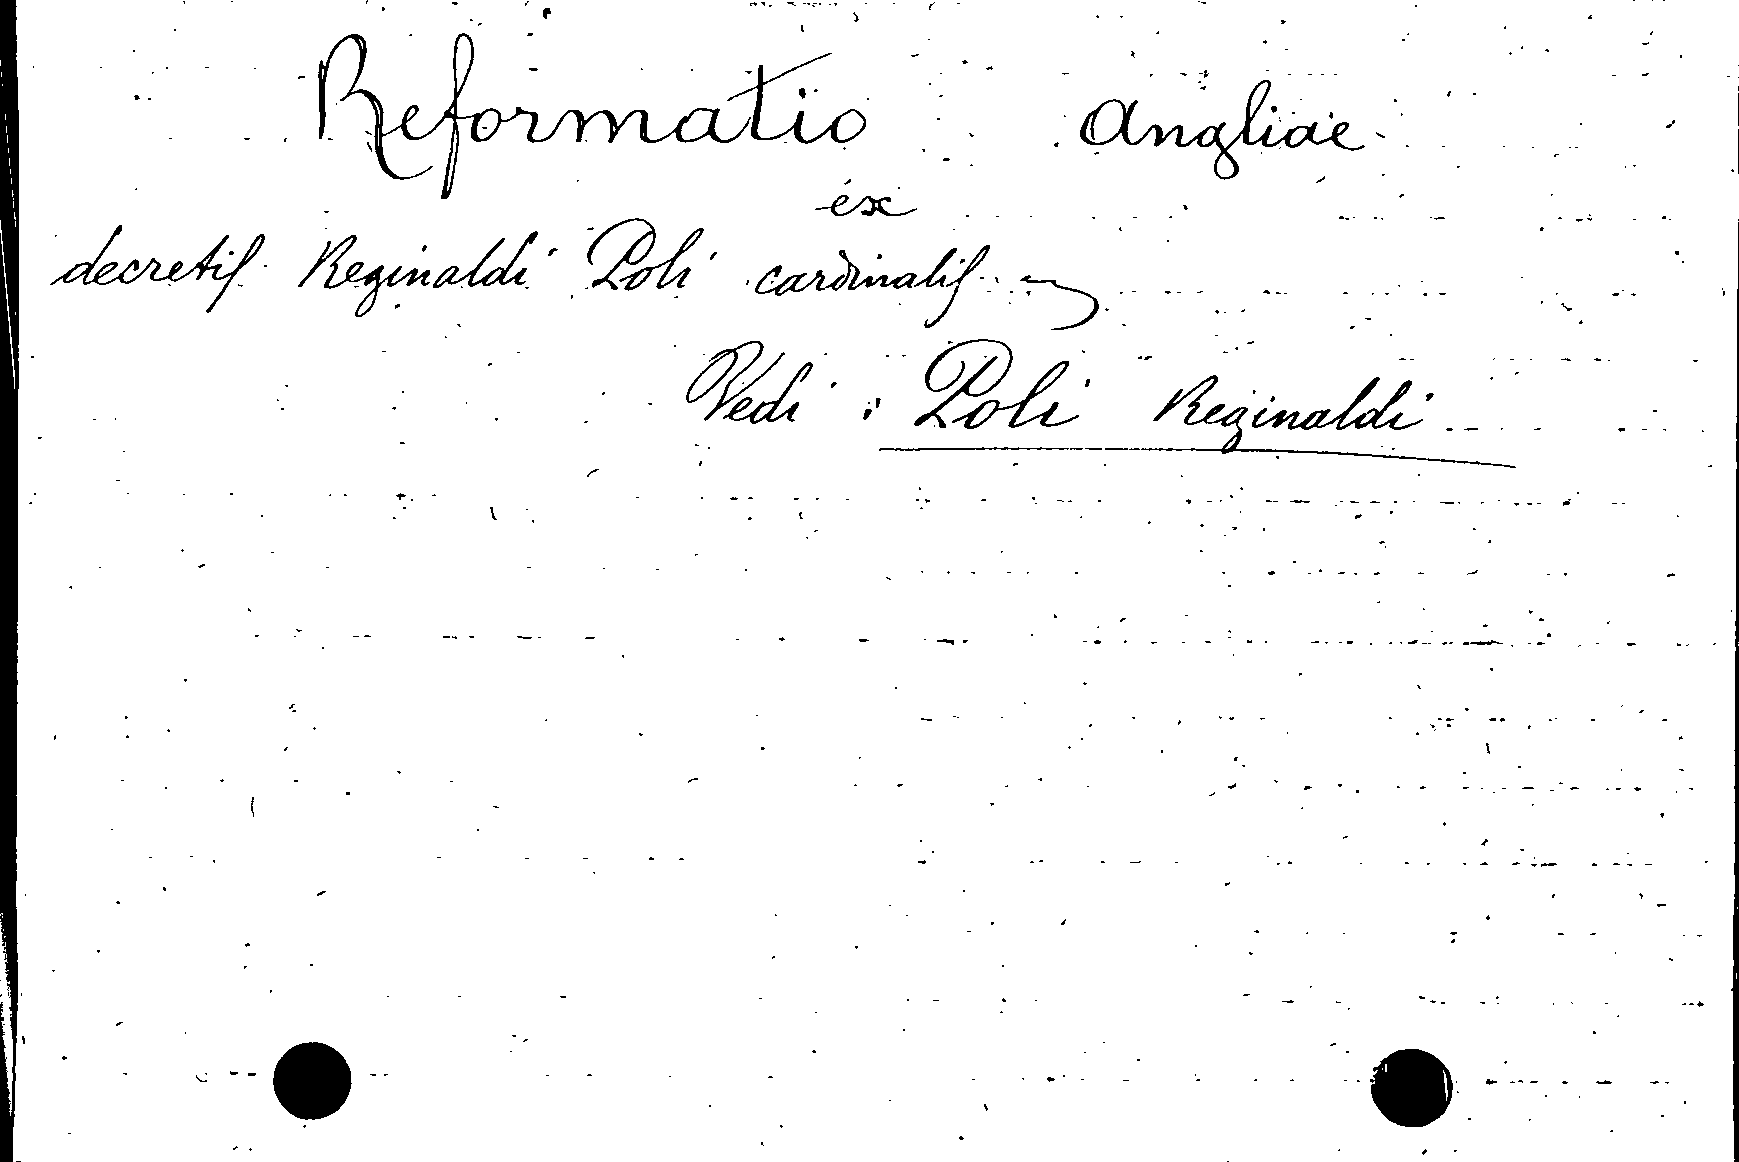 Reformatio Angliae
ex
decretis Reginaldi Poli cardinalis
Vedi : Poli Reginaldi